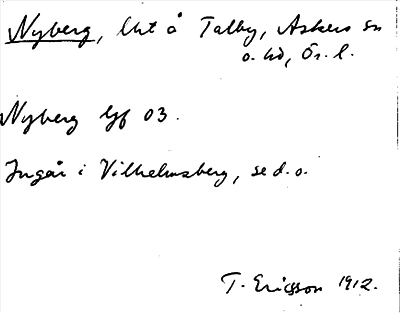 Nyberg, lht å Talby, Askers sn
o. hd, Ör. l.
Nyberg lgf 03.
Ingår i Vilhelmsberg, se d. o.
T. Ericsson 1912.